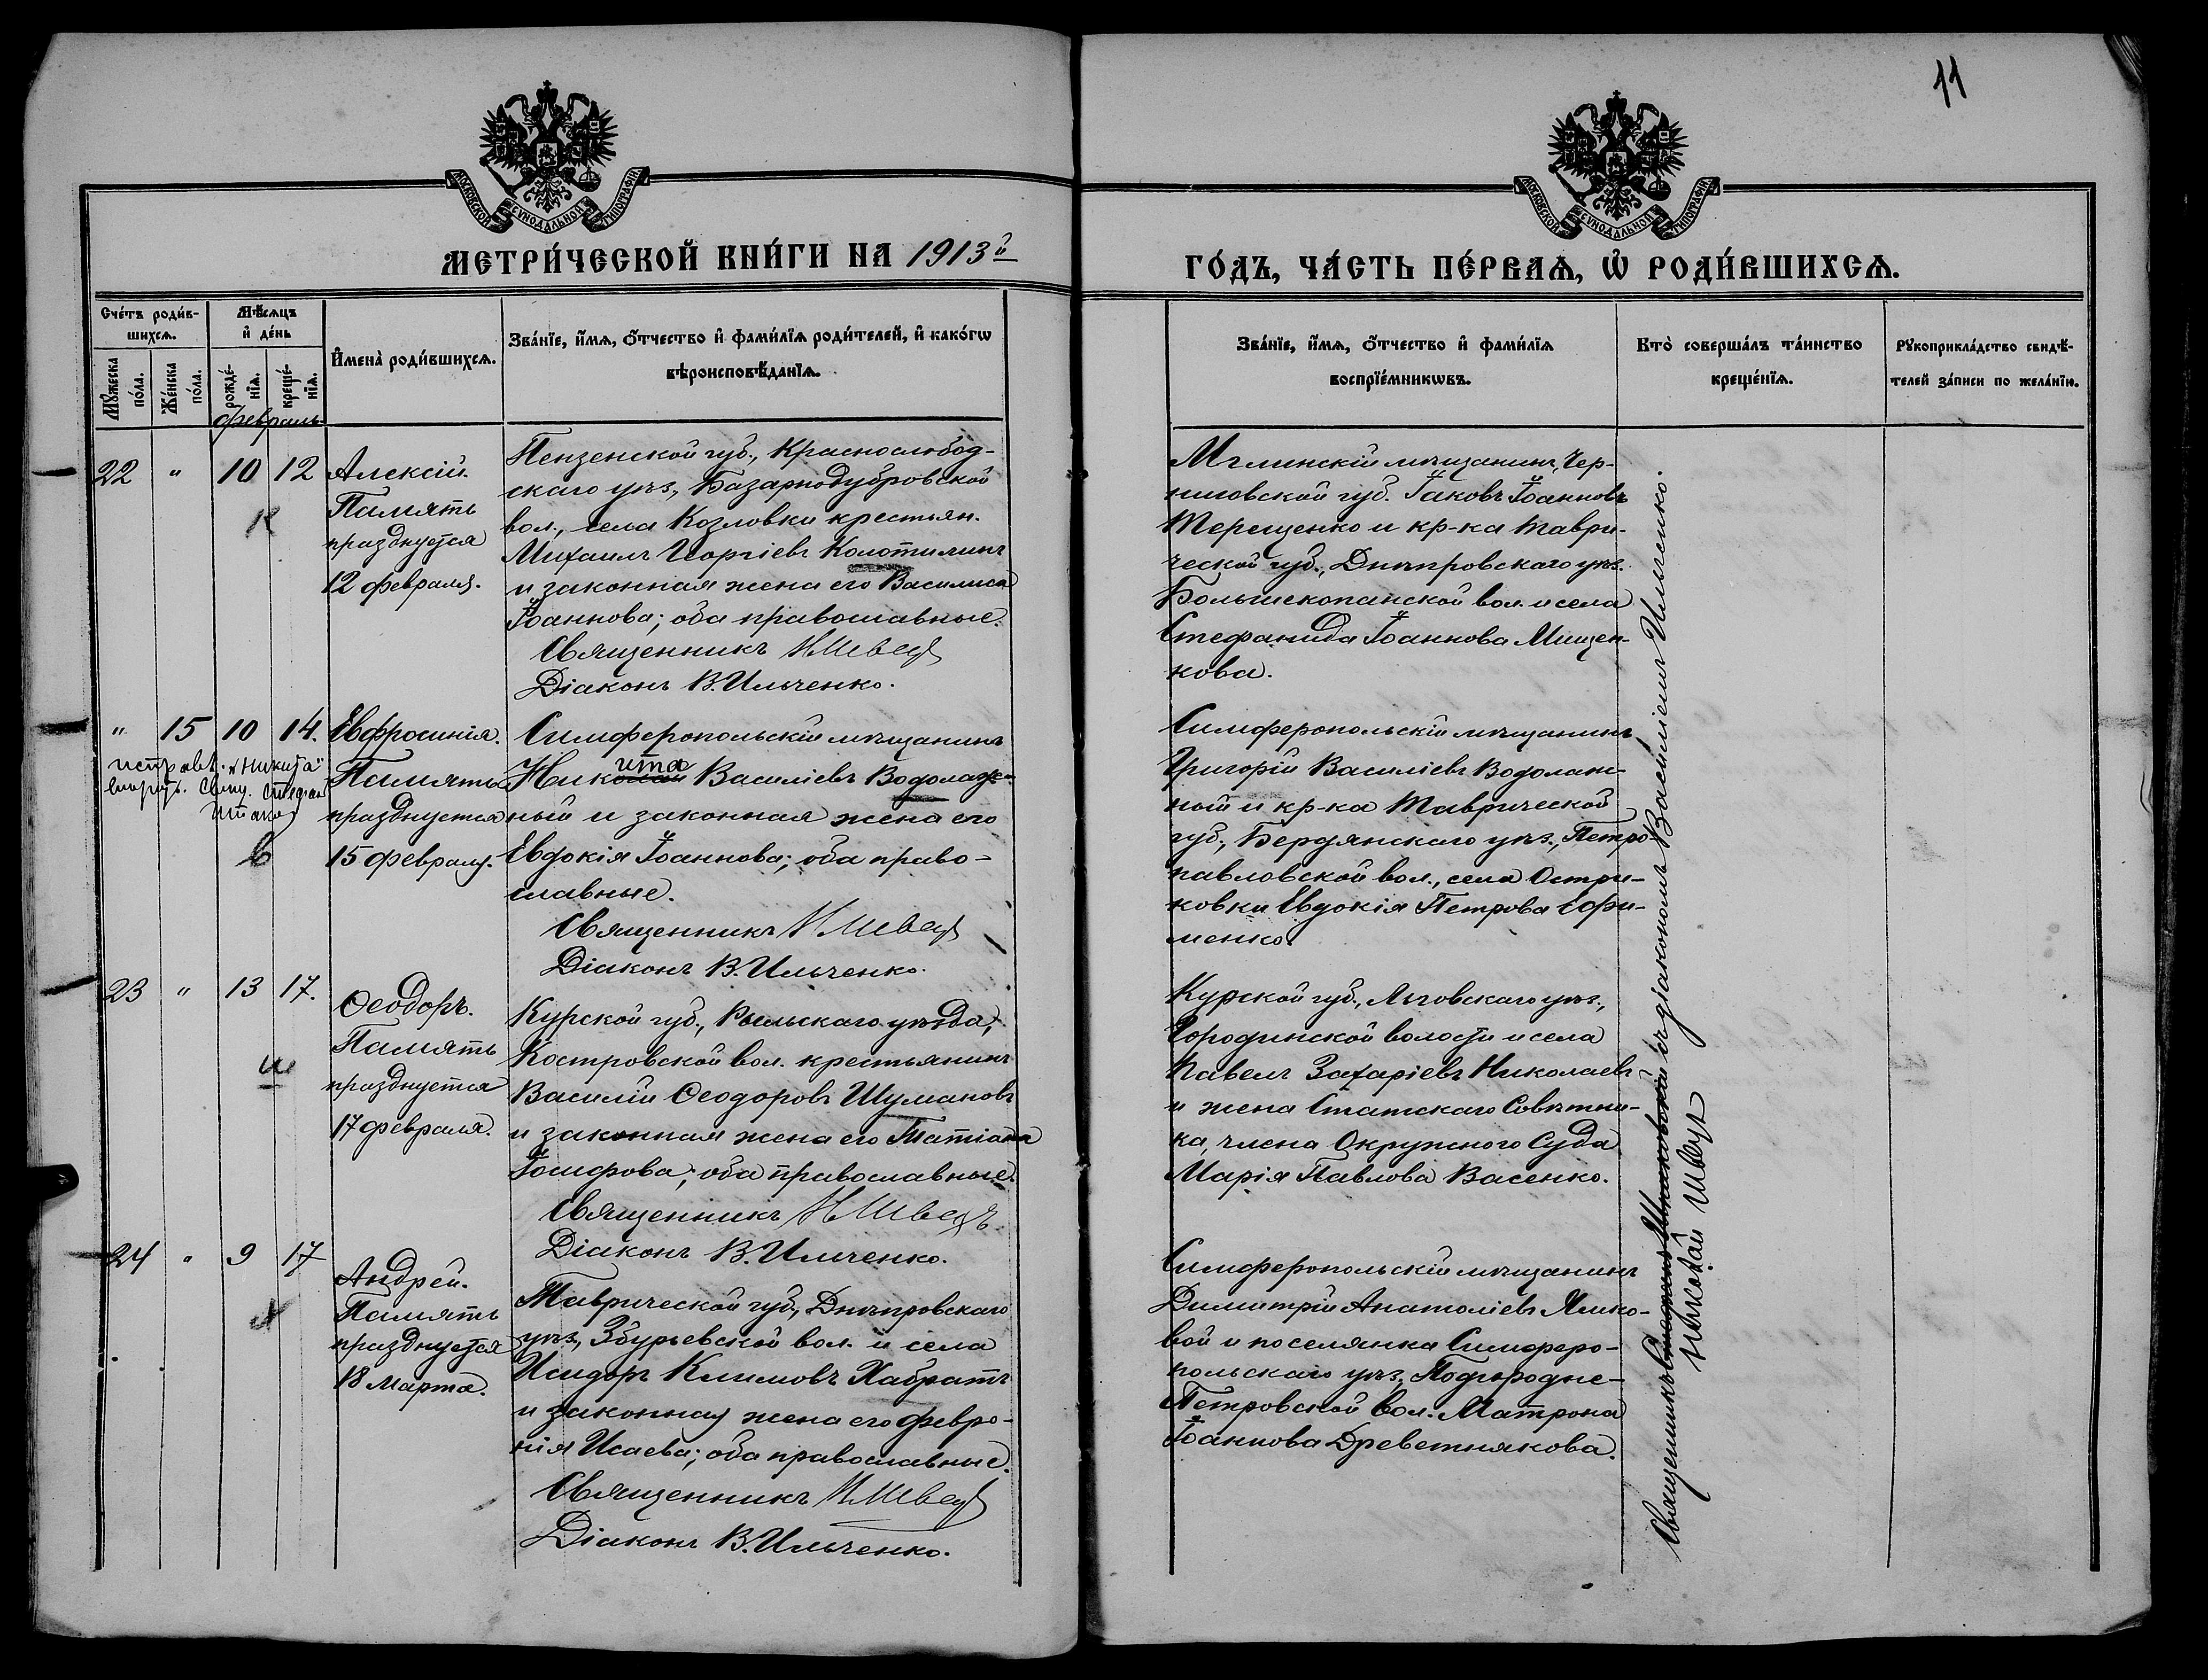 11
МОСКОВСКОЙ СѴНОДАЛЬНОЙ ТИПОГРАФІИ
МОСКОВСКОЙ СѴНОДАЛЬНОЙ ТИПОГРАФІИ
МЕТРИ́ЧЕСКОЙ КНИ́ГИ НА 1913й
ГО́ДЪ, ЧА́СТЬ ПЕ́РВАѦ, Ѡ҆ РОДИ́ВШИХСѦ.
Сче́тъ роди́в-
шихсѧ.
Мѣ́сѧцъ
и҆ де́нь
Мꙋ́жеска
по́ла.
Же́нска
по́ла.
рожде́-
нїѧ.
креще́-
нїѧ.
И҆мена̀ роди́вшихсѧ.
Зва́нїе, и҆́мѧ, ѻ҆́тчество и҆ фами́лїѧ роди́телей, и҆ како́гѡ
вѣроисповѣ́данїѧ.
Зва́нїе, и҆́мѧ, ѻ҆́тчество и҆ фами́лїѧ
воспрїе́мникѡвъ.
Кто̀ соверша́лъ та́инство
креще́нїѧ.
Рꙋкоприкла́дство свидѣ́-
телей за́писи по жела́нїю.
Февраль
22 " 10 12
К
Алексій.
Память
празднуется
12 февраля.
Пензенской губ., Краснослобод-
скаго уѣз., Базарнодубровской
вол., села Козловки крестьян.
Михаилъ Георгіевъ Колотилинъ
и законная жена его Василиса
Іоаннова; оба православные.
Священникъ Н Швец
Діаконъ В. Ильченко.
Мглинскій мѣщанинъ, Чер-
ниговской губ. Іаковъ Іоанновъ
Терещенко и кр-ка Таври-
ческой губ., Днѣпровскаго уѣз.
Большекопанской вол. и села
Стефанида Іоаннова Мищен-
кова.
" 15 10 14.
исправл. "Никита"
в
Евфросинія.
Память
празднуется
15 февраля.
Симферопольскій мѣщанинъ
Николай ита Василіевъ Водолаж-
ный и законная жена его
Евдокія Іоаннова; оба право-
славные.
Священникъ Н Швец
Діаконъ В. Ильченко.
Симферопольскій мѣщанинъ
Григорій Василіевъ Водолаж-
ный и кр-ка Таврической
губ., Бердянскаго уѣз., Петро-
павловской вол., села Остри-
ковки Евдокія Петрова Ефи-
менко.
23 " 13 17.
ш
Ѳеодоръ.
Память
празднуется
17 февраля.
Курской губ., Рыльскаго уѣзда,
Костровской вол. крестьянинъ
Василій Ѳеодоровъ Шумановъ
и законная жена его Татіана
Іосифова; оба православные.
Священникъ Н Швецъ
Діаконъ В. Ильченко.
Курской губ., Льговскаго уѣз.,
Городинской волости и села
Павелъ Захаріевъ Николаевъ
и жена Статскаго Совѣтни-
ка, члена Окружного Суда
Марія Павлова Васенко.
24 " 9 17
Х
Андрей.
Память
празднуется
18 Марта.
Таврической губ., Днѣпровскаго
уѣз., Збурьевской вол. и села
Исидоръ Климовъ Хабратъ
и законная жена его Февро-
нія Исаева; оба православные.
Священникъ Н Швец
Діаконъ В. Ильченко.
Симферопольскій мѣщанинъ
Димитрій Анатоліевъ Ялико-
вой и поселянка Симферо-
польскаго уѣз., Подгородне-
Петровской вол. Матрона
Іоаннова Древетнякова.
Священникъ съ діакономъ Василіемъ Ильченко.
Николай Швец